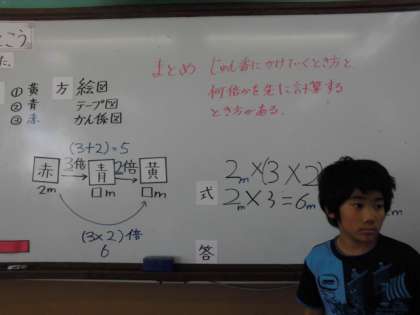 こう。
た。
① 黄
② 青
③ 赤
方 絵図
テープ図
かん係図
まとめ じゅん番にかけていくとき方と
何倍かを先に計算する
とき方がある。
(3+2)=5
赤 3倍 青 2倍 黄
2m □m □m
(3×2)倍
6
式 2m×(3×2)
2m×3=6m
m
答